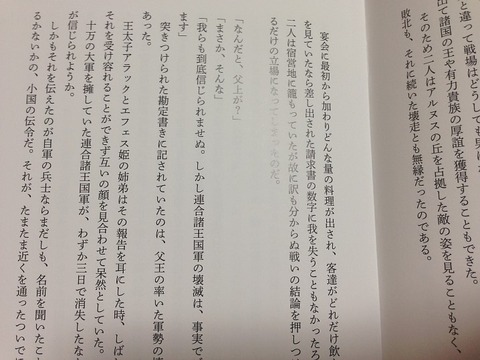 と違って戦場はどうしても男は
出て諸国の王や有力貴族の厚誼を獲得することもでき
そのため二人はアルヌスの丘を占拠した敵の姿を見ることもなく、
敗北も、それに続いた壊走とも無縁だったのである。
宴会に最初から加わりどんな量の料理が出され、客達がどれだけ飲
を見ていたなら差し出された請求書の数字に我を失うこともなかったろ
二人は宿営地に籠もっていたが故に訳も分からぬ戦いの結論を押しつ
るだけの立場になってしまったのだ。
「なんだと、父上が？」
「まさか、そんな」
「我らも到底信じられませぬ。しかし連合諸王国軍の壊滅は、事実で
ます」
突きつけられた勘定書きに記されていたのは、父王の率いた軍勢の
あった。
王太子アラックとエフェス姫の姉弟はその報告を耳にした時、しば
それを受け容れることができず互いの顔を見合わせて呆然としていた。
十万の大軍を擁していた連合諸王国軍が、わずか三日で消失したな
が信じられようか。
しかもそれを伝えたのが自軍の兵士ならまだしも、名前を聞いたこ
るかないかの、小国の伝令だ。それが、たまたま近くを通ったついで